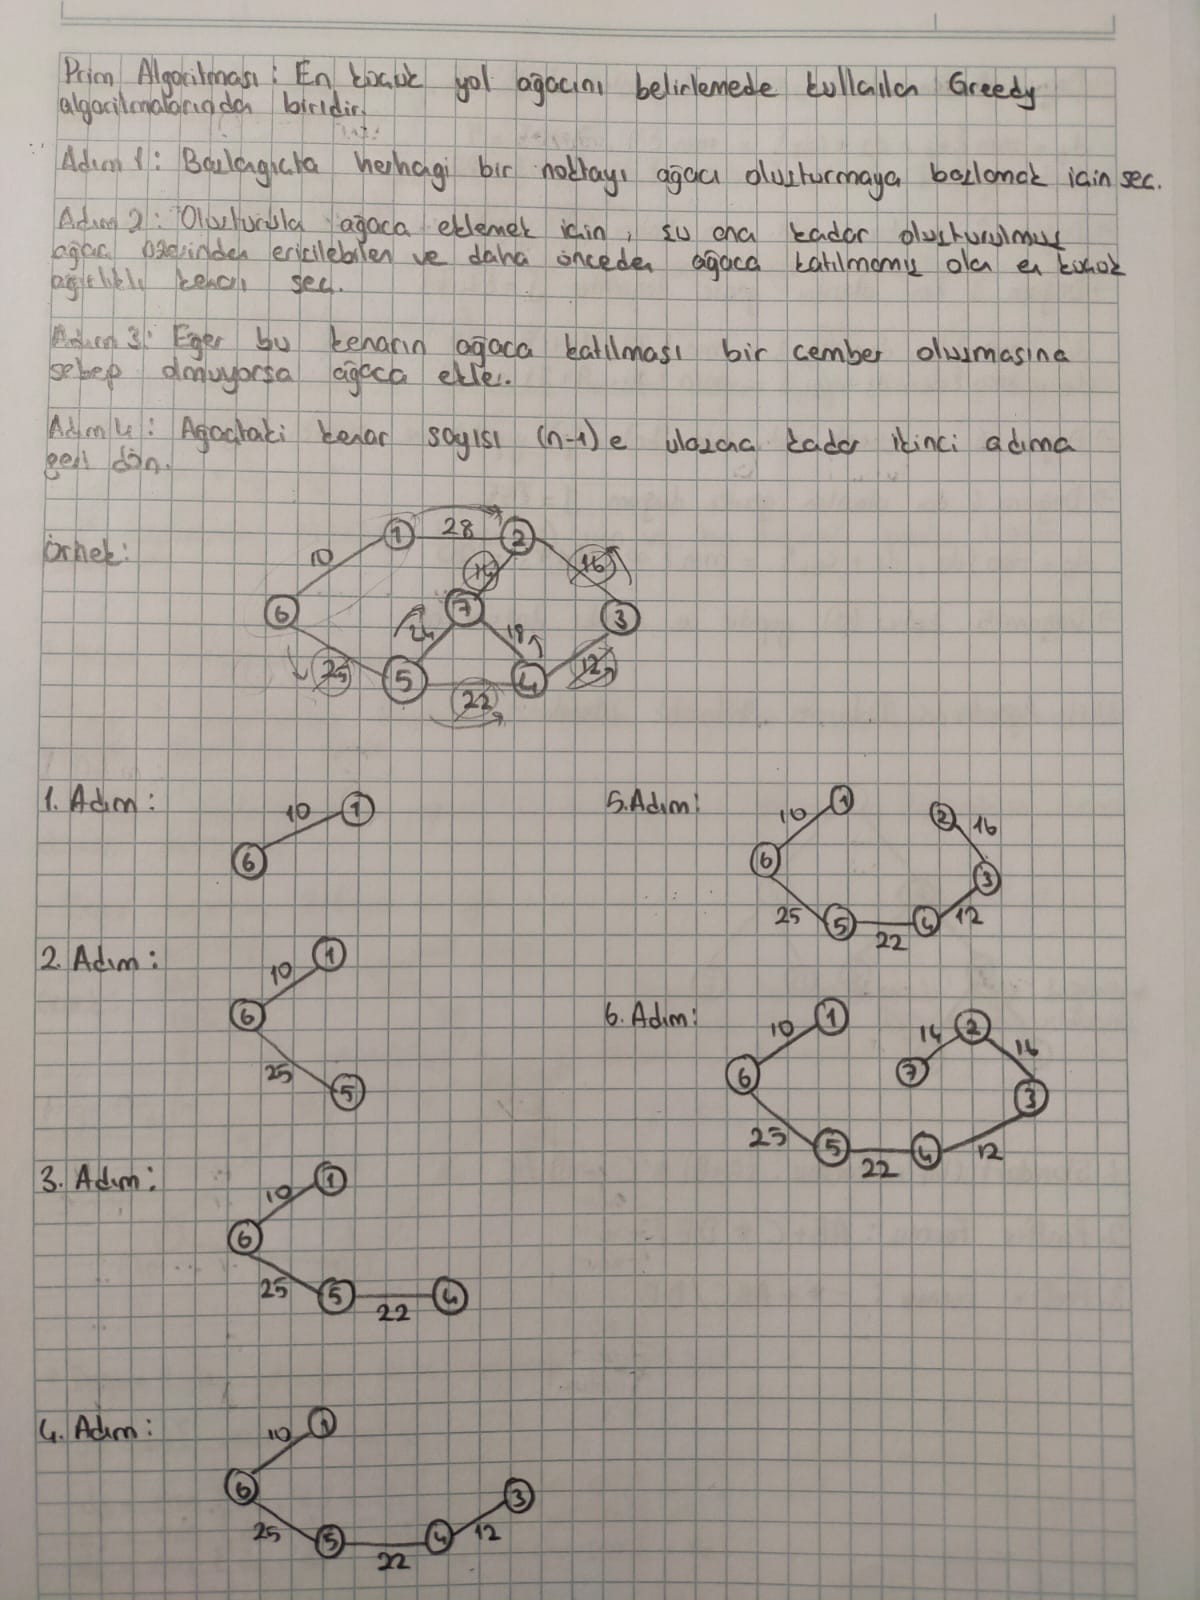 Prim Algoritması : En küçük yol ağacını belirlemede kullaılan Greedy
algoritmalarından biridir.
Adım 1 : Baslagıcta herhagi bir noktayı ağacı olusturmaya baslamak icin sec.
Adım 2 : Olusturula ağaca eklemek icin, su ana kadar olusturulmus
ağac üzerinden ericilebilen ve daha önceden ağaca katılmamıs olan en kücük
ağırlıklı kenarı sec.
Adım 3 : Eğer bu kenarın ağaca katılması bir cember olusmasına
sebep olmuyorsa ağaca ekle.
Adım 4 : Ağactaki kenar sayısı (n-1) e ulasana kadar ikinci adıma
geri dön.
örnek :
1 28 2
10 14 16
6 7 3
24 18
25 5 22 4 12
1. Adım :
10 1
6
5. Adım :
10 1 2 16
6 3
25 5 22 4 12
2. Adım :
10 1
6
25 5
6. Adım :
10 1 14 2 16
6 7 3
25 5 22 4 12
3. Adım :
10 1
6
25 5 22 4
4. Adım :
10 1
6 3
25 5 22 4 12